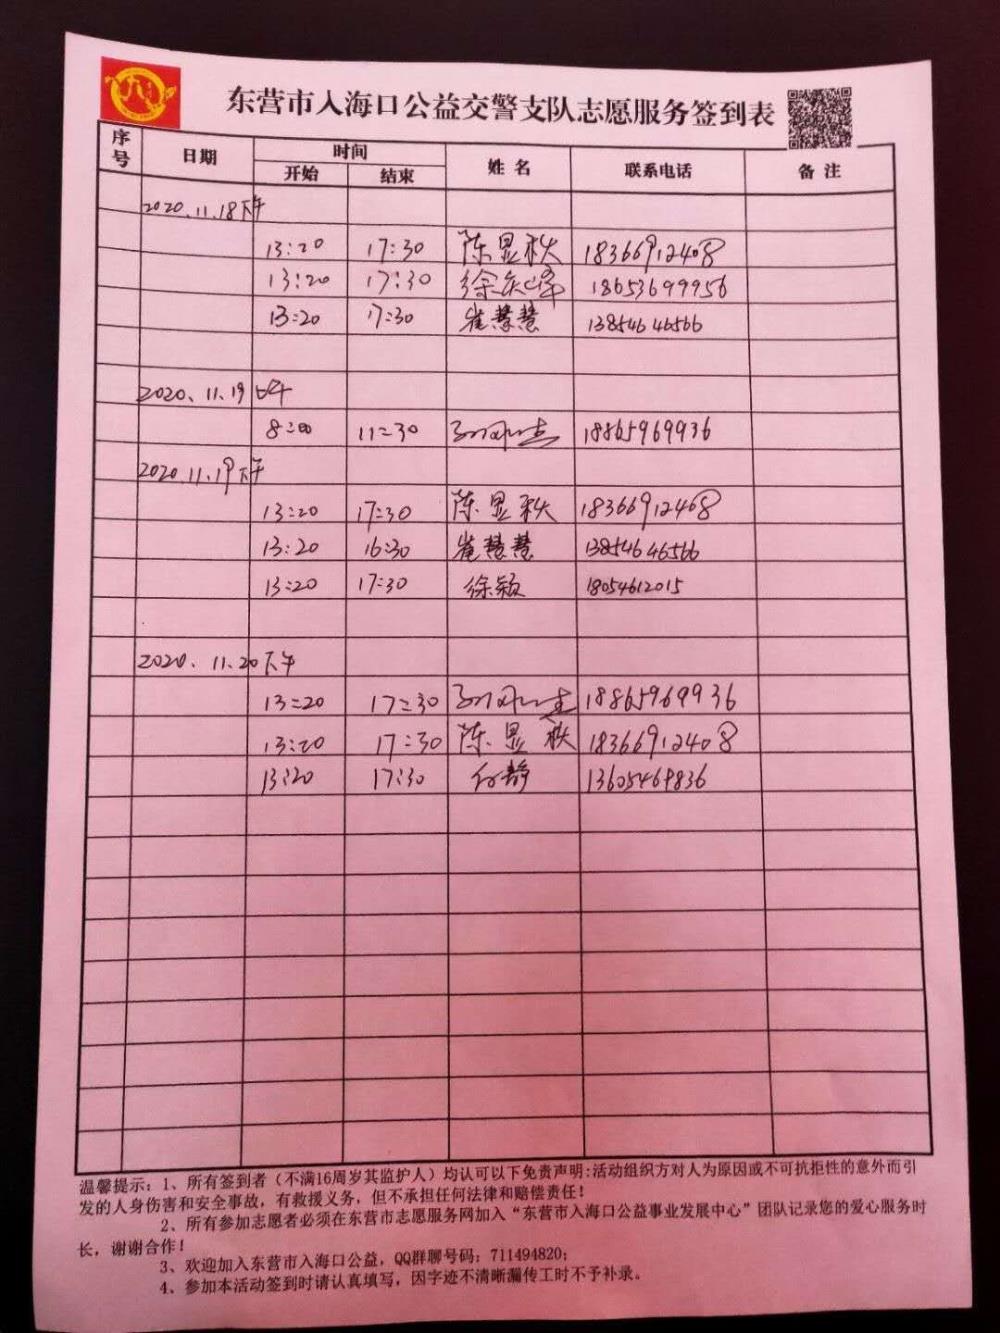 东营市入海口公益交警支队志愿服务签到表
序号 日期 时间 开始 结束 姓名 联系电话 备注
2020.11.18下午
13:20 17:30 陈显秋 18366912408
13:20 17:30 徐庆峰 18653699956
13:20 17:30 崔慧慧 13854646566
2020.11.19上午
8:00 11:30 18865969936
2020.11.19下午
13:20 17:30 陈显秋 18366912408
13:20 16:30 崔慧慧 13854646566
13:20 17:30 徐颖 18054612015
2020.11.20下午
13:20 17:30 18865969936
13:20 17:30 陈显秋 18366912408
13:20 17:30 付静 13605469836
温馨提示：1、所有签到者（不满16周岁其监护人）均认可以下免责声明：活动组织方对人为原因或不可抗拒性的意外而引
发的人身伤害和安全事故，有救援义务，但不承担任何法律和赔偿责任！
2、所有参加志愿者必须在东营市志愿服务网加入“东营市入海口公益事业发展中心”团队记录您的爱心服务时
长，谢谢合作！
3、欢迎加入东营市入海口公益，QQ群聊号码：711494820；
4、参加本活动签到时请认真填写，因字迹不清晰漏传工时不予补录。